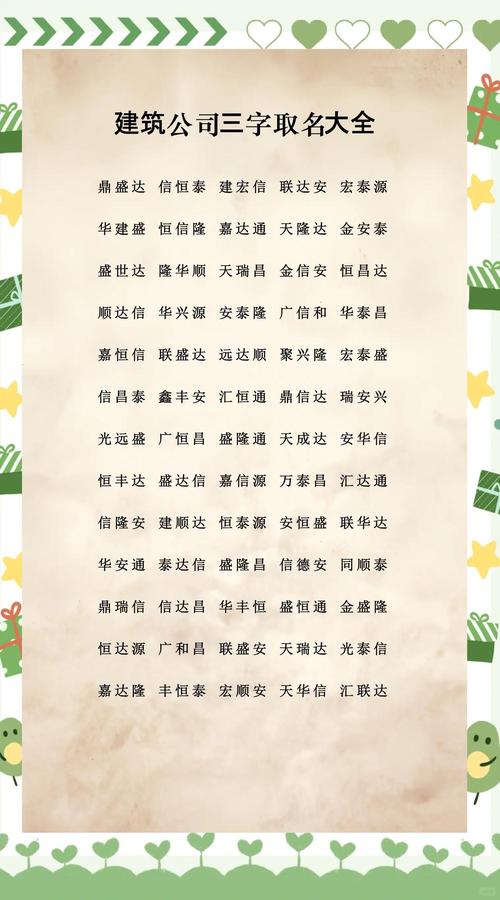 建筑公司三字取名大全
鼎盛达 信恒泰 建宏信 联达安 宏泰源
华建盛 恒信隆 嘉达通 天隆达 金安泰
盛世达 隆华顺 天瑞昌 金信安 恒昌达
顺达信 华兴源 安泰隆 广信和 华泰昌
嘉恒信 联盛达 远达顺 聚兴隆 宏泰盛
信昌泰 鑫丰安 汇恒通 鼎信达 瑞安兴
光远盛 广恒昌 盛隆通 天成达 安华信
恒丰达 盛达信 嘉信源 万泰昌 汇达通
信隆安 建顺达 恒泰源 安恒盛 联华达
华安通 泰达信 盛隆昌 信德安 同顺泰
鼎瑞信 信达昌 华丰恒 盛恒通 金盛隆
恒达源 广和昌 联盛安 天瑞达 光泰信
嘉达隆 丰恒泰 宏顺安 天华信 汇联达